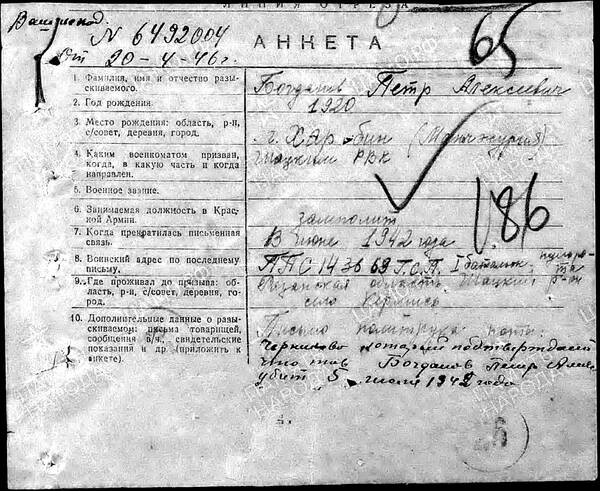 ЛИНИЯ ОТРЕЗА
Ваш исход.
N 6492004
от 20-4-46г.
65
АНКЕТА
1. Фамилия, имя и отчество разыскиваемого.
Богданов Петр Алексеевич
2. Год рождения.
1920
3. Место рождения: область, р-н, с/совет, деревня, город.
г. Харбин (Манчжурия)
4. Каким военкоматом призван, когда, в какую часть и когда направлен.
Шацким РВК
5. Военное звание.
86
6. Занимаемая должность в Красной Армии.
замполит
7. Когда прекратилась письменная связь.
В июне 1942 года
8. Воинский адрес по последнему письму.
ППС 1436 69 Г.С.П. I батальон
9. Где проживал до призыва: область, р-н, с/совет, деревня, город.
Рязанская область, Шацкий р-он
село Кермись
10. Дополнительные данные о разыскиваемом: письма товарищей, сообщения в/ч., свидетельские показания и др. (приложить к анкете).
Письмо политрука
который подтверждает
что тов Богданов Петр Алекс
убит 5 июля 1942 года